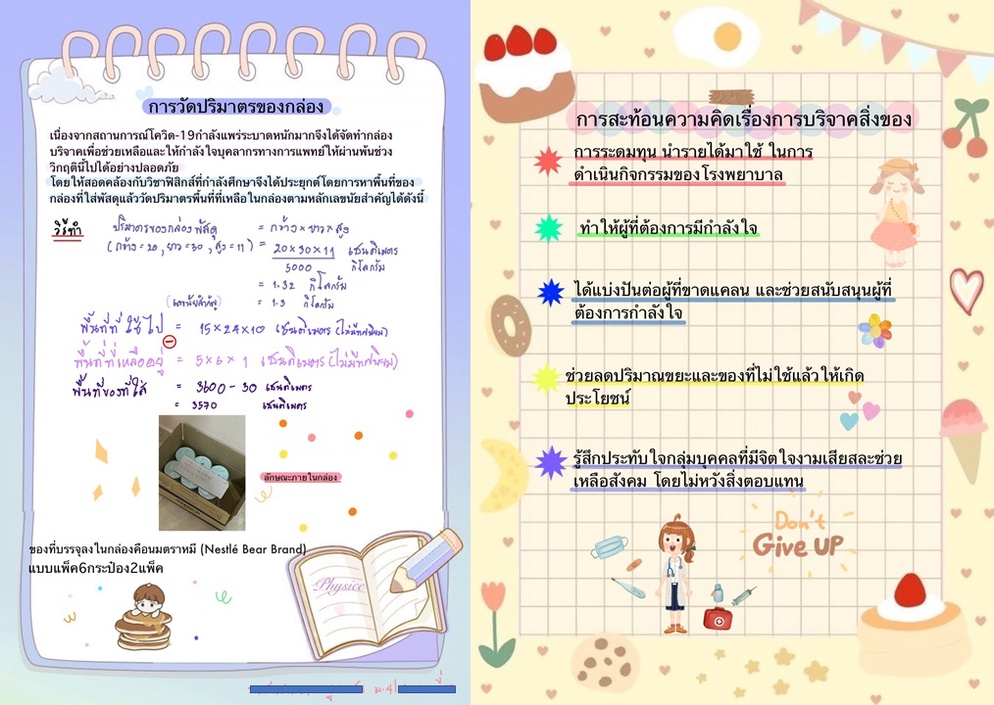 การวัดปริมาตรของกล่อง
เนื่องจากสถานการณ์โควิด-19กำลังแพร่ระบาดหนักมากจึงได้จัดทำกล่อง
บริจาคเพื่อช่วยเหลือและให้กำลังใจบุคลากรทางการแพทย์ให้ผ่านพ้นช่วง
วิกฤตินี้ไปได้อย่างปลอดภัย
โดยให้สอดคล้องกับวิชาฟิสิกส์ที่กำลังศึกษาจึงได้ประยุกต์โดยการหาพื้นที่ของ
กล่องที่ใส่พัสดุแล้ววัดปริมาตรพื้นที่ที่เหลือในกล่องตามหลักเลขนัยสำคัญได้ดังนี้
วิธีทำ ปริมาตรของกล่องพัสดุ = กว้าง × ยาว × สูง
(กว้าง = 20, ยาว = 30, สูง = 11) = 20×30×11 เซนติเมตร
5000 กิโลกรัม
= 1.32 กิโลกรัม
(เลขนัยสำคัญ) = 1.3 กิโลกรัม
พื้นที่ที่ใช้ไป = 15×24×10 เซนติเมตร (ไม่มีทศนิยม)
พื้นที่ที่เหลืออยู่ = 5×6×1 เซนติเมตร (ไม่มีทศนิยม)
พื้นที่ของที่ใส่ = 3600 - 30 เซนติเมตร
= 3570 เซนติเมตร
ลักษณะภายในกล่อง
ของที่บรรจุลงในกล่องคือนมตราหมี (Nestlé Bear Brand)
แบบแพ็ค6กระป๋อง2แพ็ค
Physics
ม.4/
การสะท้อนความคิดเรื่องการบริจาคสิ่งของ
การระดมทุน นำรายได้มาใช้ ในการ
ดำเนินกิจกรรมของโรงพยาบาล
ทำให้ผู้ที่ต้องการมีกำลังใจ
ได้แบ่งปันต่อผู้ที่ขาดแคลน และช่วยสนับสนุนผู้ที่
ต้องการกำลังใจ
ช่วยลดปริมาณขยะและของที่ไม่ใช้แล้วให้เกิด
ประโยชน์
รู้สึกประทับใจกลุ่มบุคคลที่มีจิตใจงามเสียสละช่วย
เหลือสังคม โดยไม่หวังสิ่งตอบแทน
Don't
Give UP